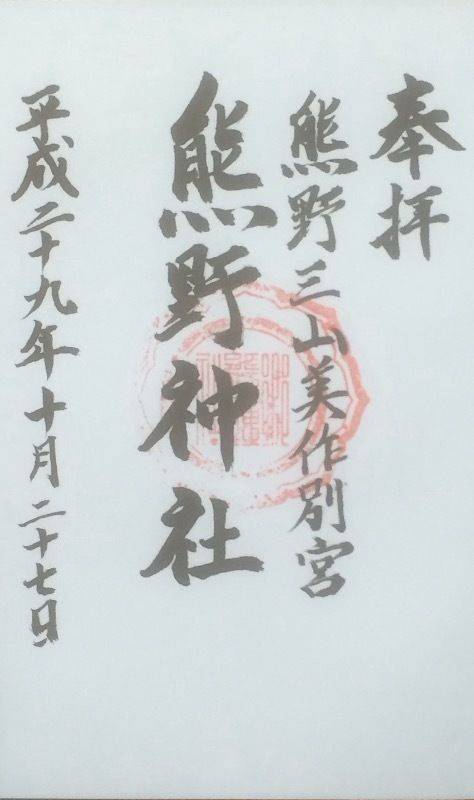 奉拝
熊野三山美作別宮
熊野神社
平成二十九年十月二十七日